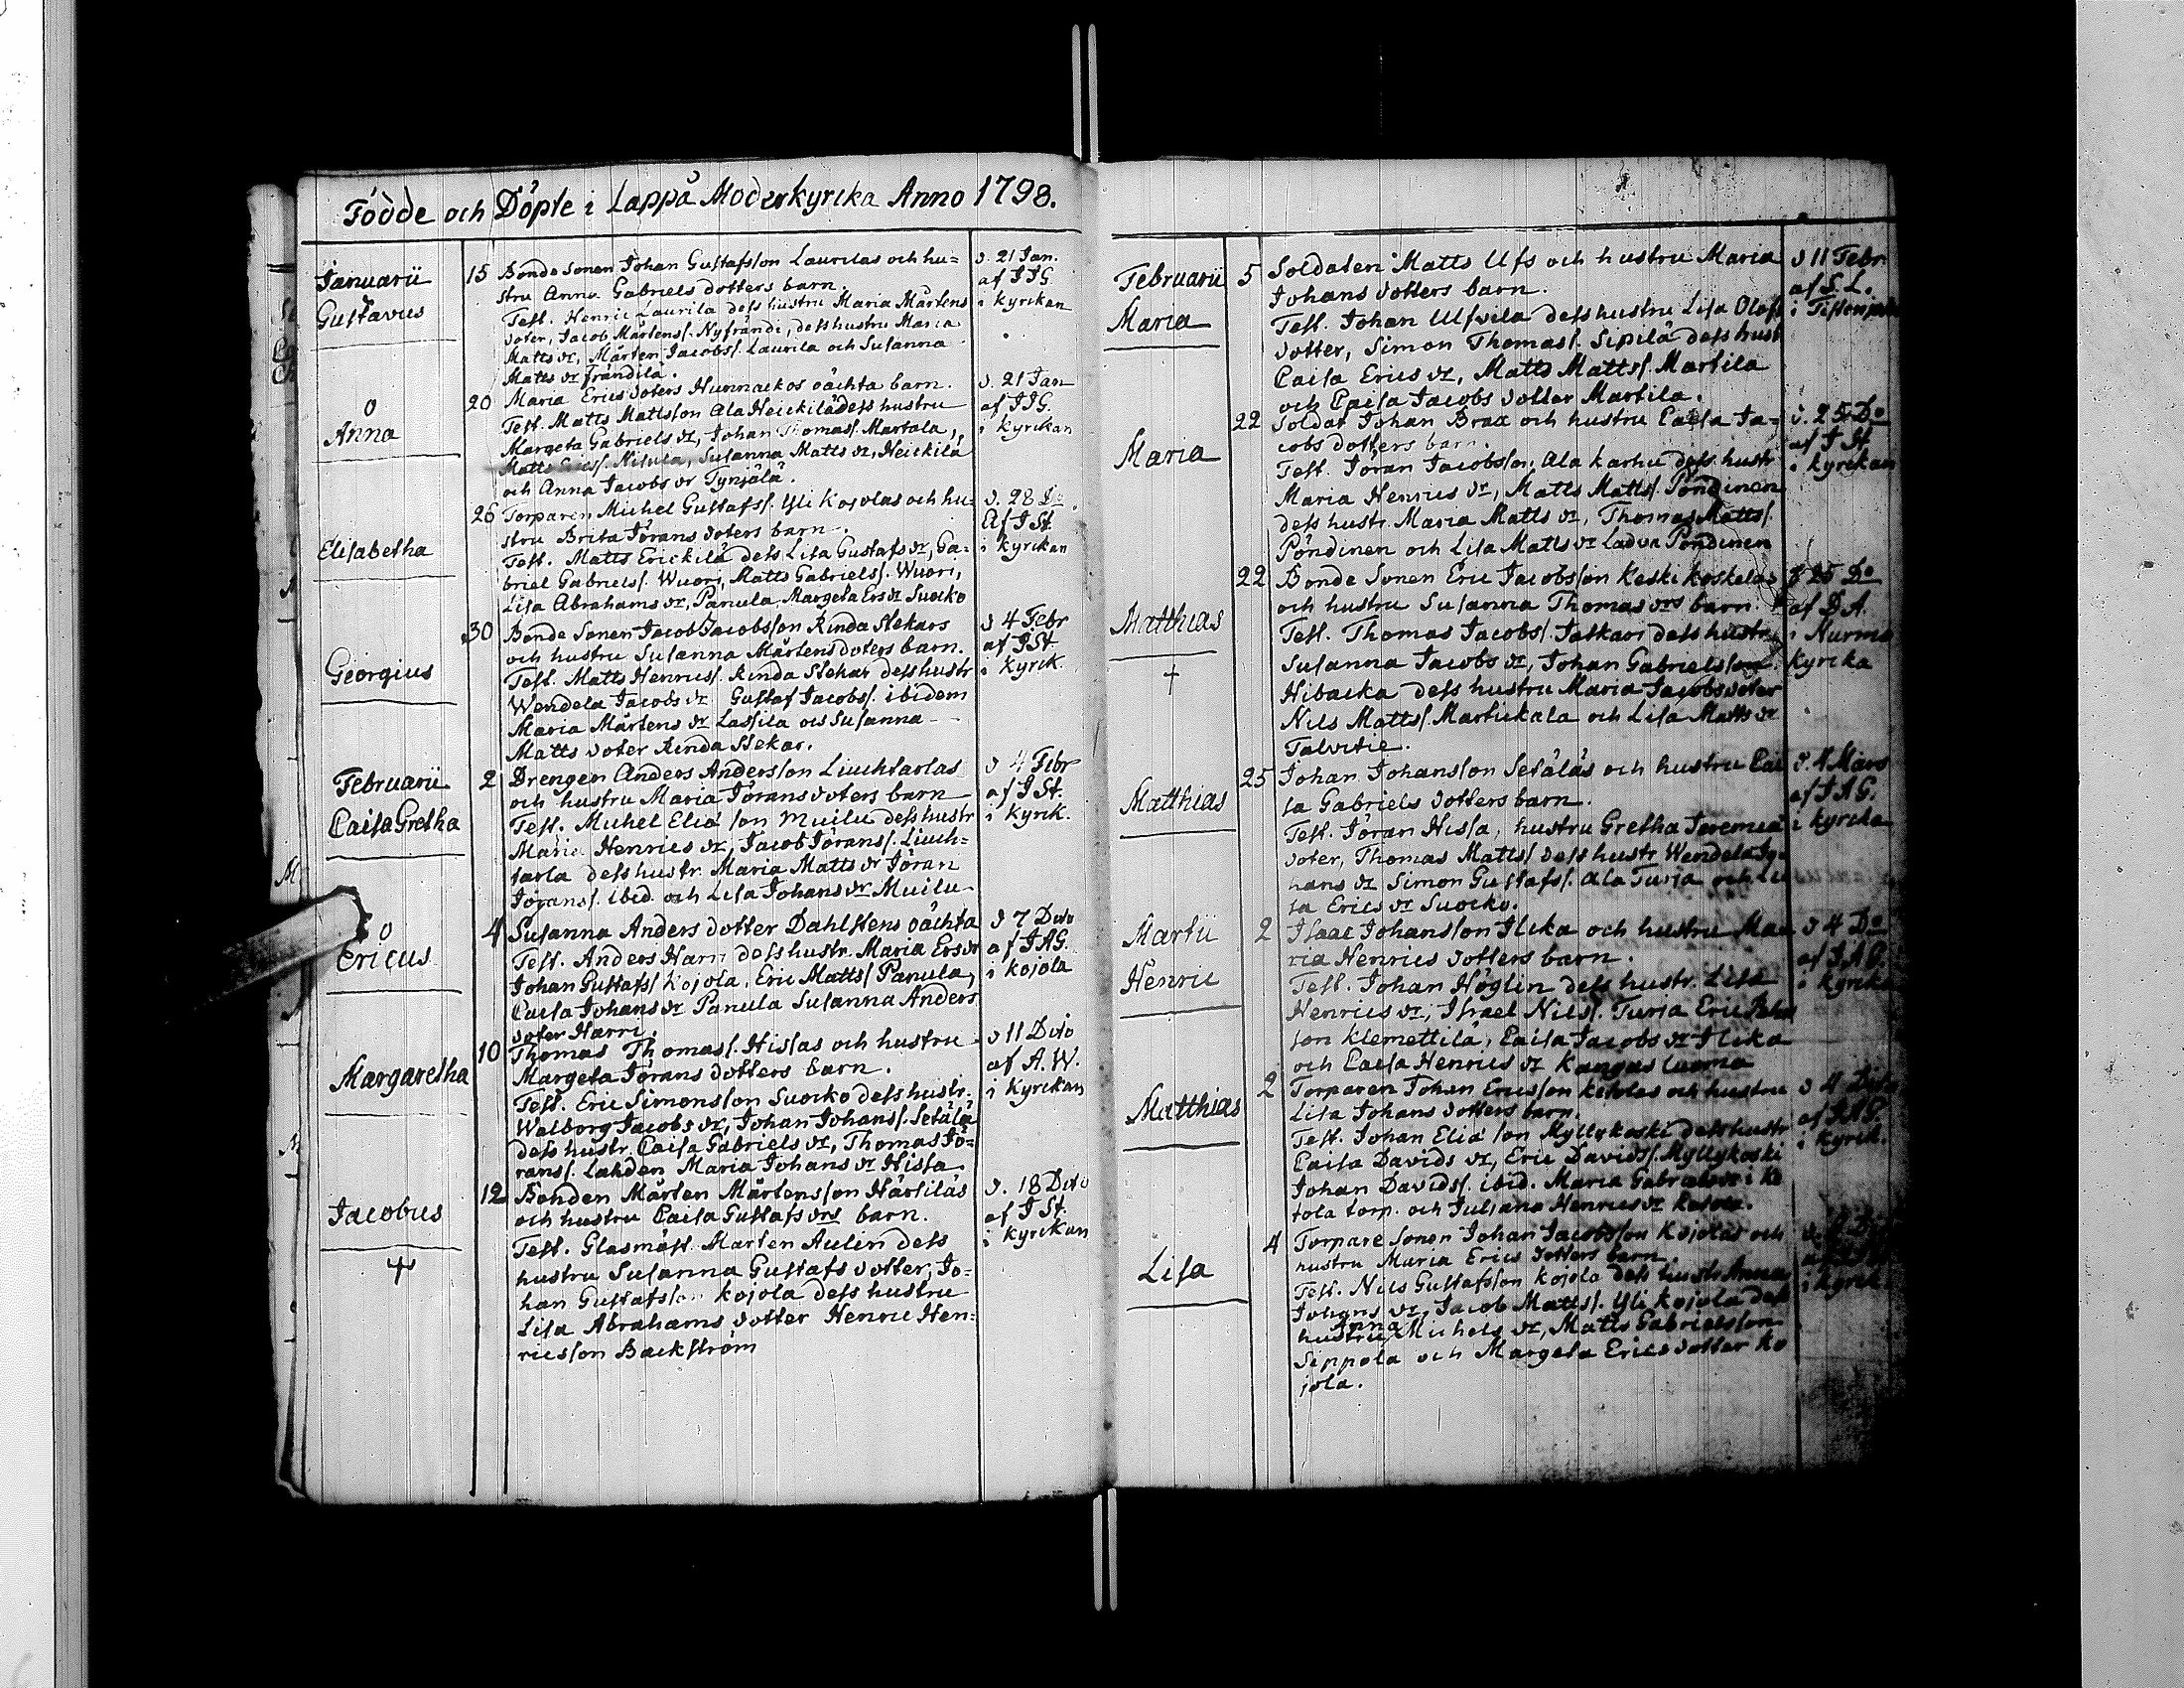 Födde och Döpte i Lappå Moderkyrcka Anno 1798.
Januarii
Gustavus
15 Bonde Sonen Johan Gustafsson Laurilas och hu-
stru Anna Gabriels dotters barn.
Test. Henric Laurila dess hustru Maria Mårtens
doter, Jacob Mårtens/. Nyfrändi, dess hustru Maria
Matts dr, Mårten Jacobs/. Laurila och Susanna
Matts dr Frändilä.
d. 21 Jan.
af JJG.
i kyrckan
0
Anna
20 Maria Erics doters Hunnackos oächta barn.
Test. Matts Mattsson Ala Heickilä dess hustru
Margeta Gabriels dr, Johan Thomas/. Martala,
Matts Erics/. Nisula, Susanna Matts dr, Heickilä
och Anna Jacobs dr Tynjälä.
d. 21 Jan
af JJG.
i kyrckan
Elisabetha
26 Torparen Michel Gustafs/. Yli Kojolas och hu-
stru Brita Jörans doters barn.
Test. Matts Erickilä dess Lisa Gustafs dr, Ga-
briel Gabriels/. Wuori, Matts Gabriels/. Wuori,
Lisa Abrahams dr, Panula, Margeta Ers dr Suocko
d. 28 Do
Af J St.
i kyrckan
Georgius
30 Bonde Sonen Jacob Jacobsson Rinda Stekars
och hustru Susanna Mårtens doters barn.
Test. Matts Henrics/. Rinda Stekar dess hustr
Wendela Jacobs dr Gustaf Jacobs/. ibidem
Maria Mårtens dr Lassila och Susanna
Matts doter Rinda Stekar.
d 4 Febr
af J St.
i kyrck.
Februarii
Caisa Gretha
2 Drengen Anders Andersson Liuchtarlas
och hustru Maria Jörans doters barn
Test. Michel Eliæ son Muilu dess hustr
Maria Henrics dr, Jacob Jörans/. Liuch-
tarla dess hustr. Maria Matts dr Jöran
Jörans/. ibid. och Lisa Johans dr Muilu
d 4 Febr
af J St.
i kyrck.
0
Ericus
4 Susanna Anders dotter Dahlstens oächta
Test. Anders Harri dess hustr. Maria Ers dr
Johan Gustafs/ Kojola, Eric Matts/ Panula,
Caisa Johans dr Panula Susanna Anders
doter Harri.
d 7 Dito
af JAG.
i kojola
Margaretha
10 Thomas Thomas/. Hissas och hustru
Margeta Jörans dotters barn.
Test. Eric Simonsson Suocko dess hustr.
Walborg Jacobs dr, Johan Johans/. Setälä
dess hustr. Caisa Gabriels dr, Thomas Jö-
rans/. Lahden Maria Johans dr Hissa
d 11 Dito
af A. W.
i kyrckan
Jacobus
12 Bonden Mårten Mårtensson Härtiläs
och hustru Caisa Gustafs drs barn.
Test. Glasmäst. Marten Aulin dess
hustru Susanna Gustafs dotter, Jo-
han Gustafsson Kojola dess hustru
Lisa Abrahams dotter Henric Hen-
ricsson Backström
d. 18 Dito
af J St.
i kyrckan
Februarii
Maria
5 Soldaten Matts Ufs och hustru Maria
Johans dotters barn.
Test. Johan Ulfvila dess hustru Lisa Olofs
dotter, Simon Thomas/. Sipilä dess hust
Caisa Erics dr, Matts Matts/. Martila
och Caisa Jacobs dotter Martila.
d 11 Febr
af S. L.
Maria
22 Soldat Johan Brax och hustru Caisa Ja-
cobs dotters barn.
Test. Jöran Jacobsson Ala karhu dess hustr
Maria Henrics dr, Matts Matts/. Pöndinen
dess hustr. Maria Matts dr, Thomas Matts/.
Pöndinen och Lisa Matts dr Ladva Pöndinen
d. 25 Do
af J St
i kyrckan
Matthias
22 Bonde Sonen Eric Jacobsson Keski koskelas
och hustru Susanna Thomas drs barn.
Test. Thomas Jacobs/. Jaskari dess hustr.
Susanna Jacobs dr, Johan Gabrielsson
Hibacka dess hustru Maria Jacobs doter
Nils Matts/. Martickala och Lisa Matts dr
Talvitie.
d 25 Do
af D A.
i Nurmo
kyrcka
Matthias
25 Johan Johansson Setäläs och hustru Cai
sa Gabriels dotters barn.
Test. Jöran Hissa, hustru Gretha Jeremiæ
doter, Thomas Matts/ dess hustr. Wendela Jo-
hans dr Simon Gustafs/. Ala Turja och Li
sa Erics dr Suocko.
d. 4 Mars
af JAG.
i kyrcka
Martii
Henric
2 Isaac Johansson Ilcka och hustru Ma
ria Henrics dotters barn.
Test. Johan Höglin dess hustr. Lisa
Henrics dr, Israel Nils/. Turja Eric Joh
son Klemettilä, Caisa Jacobs dr Ilcka
och Caisa Henrics dr Kangas luoma
d 4 Do
af JAG.
i kyrcka
Matthias
2 Torparen Johan Ericsson Ketolas och hustru
Lisa Johans dotters barn.
Test. Johan Eliæ son Myllykoski dess hustr
Caisa Davids dr, Eric Davids/. Myllykoski
Johan Davids/. ibid. Maria Gabriels dr i Ke
tola torp. och Juliana Henrics dr Ketola.
d 4 Dito
af JAG.
i kyrck.
Lisa
4 Torpare Sonen Johan Jacobsson Kojolas och
hustru Maria Erics dotters barn
Test. Nils Gustafsson kojola dess hustr Anna
Johans dr, Jacob Matts/. Yli kojola dess
hustru Anna Michels dr, Matts Gabrielsson
Sippola och Margeta Erics dotter Ko
jola.
i kyrck.